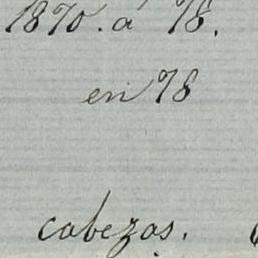 1870. á 78.
en 78
cabezas.